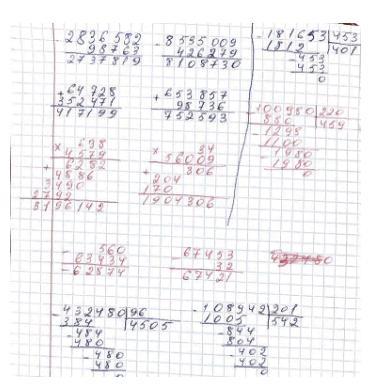 - 2836582
98763
2737819
- 8535009
426279
8108730
- 181653 | 453
1812 | 401
- 453
453
0
+ 64728
352471
417199
+ 653857
98736
752593
- 100980 | 220
880 | 459
- 1298
1100
- 1980
1980
0
× 698
4579
+ 6282
4886
3490
2792
3196142
× 34
56009
+ 306
204
170
1904306
- 560
63434
- 62874
- 67453
32
67421
- 432480 | 96
384 | 4505
- 484
480
- 480
480
0
- 108942 | 201
1005 | 542
- 844
804
- 402
402
0